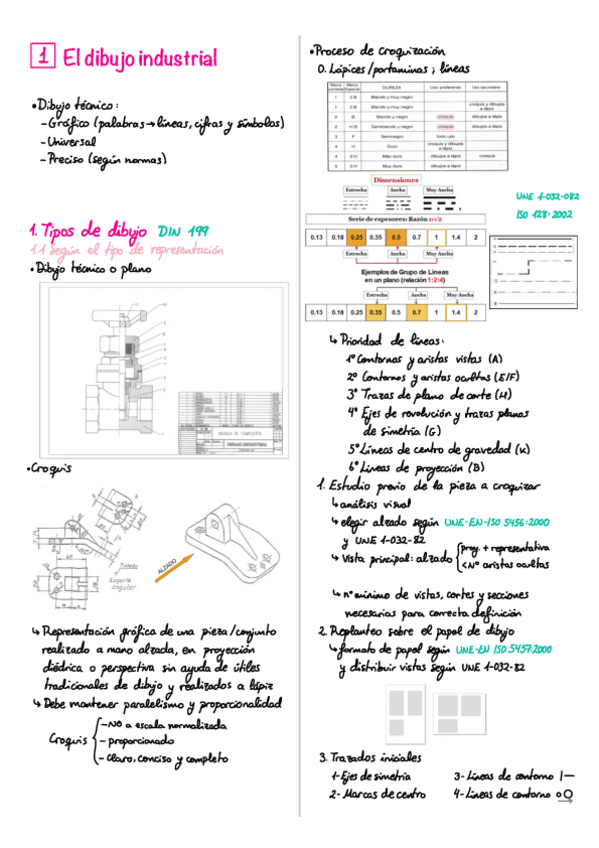 1 El dibujo industrial
•Dibujo técnico:
-Gráfico (palabras→líneas, cifras y símbolos)
-Universal
-Preciso (según normas)
1. Tipos de dibujo DIN 199
1.1 Según el tipo de representación
•Dibujo técnico o plano
DIBUJO INDUSTRIAL
•Croquis
ALZADO
↳ Representación gráfica de una pieza/conjunto
realizado a mano alzada, en proyección
diédrica o perspectiva sin ayuda de útiles
tradicionales de dibujo y realizados a lápiz
↳ Debe mantener paralelismo y proporcionalidad
Croquis
-NO a escala normalizada
-proporcionado
-Claro, conciso y completo
•Proceso de croquización
0. Lápices/portaminas; líneas
DUREZA Uso preferente Uso secundario
1 2 B Blando y muy negro
1 3 B Blando y muy negro croquis y dibujos a lápiz
2 B Blando y negro croquis dibujos a lápiz
2 H B Semiblando y negro croquis dibujos a lápiz
3 F Seminegro todo uso
4 H Duro croquis y dibujos a lápiz
4 2 H Más duro dibujos a lápiz croquis
5 3 H Muy duro dibujos a lápiz
Dimensiones
Estrecha Ancha Muy Ancha
Serie de espesores: Razón 1:√2
0.13 0.18 0.25 0.35 0.5 0.7 1 1.4 2
Estrecha Ancha Muy Ancha
Ejemplos de Grupo de Líneas
en un plano (relación 1:2:4)
Estrecha Ancha Muy Ancha
0.13 0.18 0.25 0.35 0.5 0.7 1 1.4 2
UNE 1-032-082
ISO 128:2002
↳ Prioridad de líneas:
1º Contornos y aristas vistas (A)
2º Contornos y aristas ocultas (E/F)
3º Trazas de plano de corte (H)
4º Ejes de revolución y trazas planas
de simetría (G)
5º Líneas de centro de gravedad (K)
6º Líneas de proyección (B)
1. Estudio previo de la pieza a croquizar
↳ análisis visual
↳ elegir alzado según UNE-EN-ISO 5456:2000
y UNE 1-032-82
↳ Vista principal: alzado
proy. + representativa
<Nº aristas ocultas
↳ nº mínimo de vistas, cortes y secciones
necesarias para correcta definición
2. Replanteo sobre el papel de dibujo
↳ formato de papel según UNE-EN ISO 5457:2000
y distribuir vistas según UNE 1-032-82
3. Trazados iniciales
1-Ejes de simetría
2- Marcas de centro
3-Líneas de contorno
4-Líneas de contorno